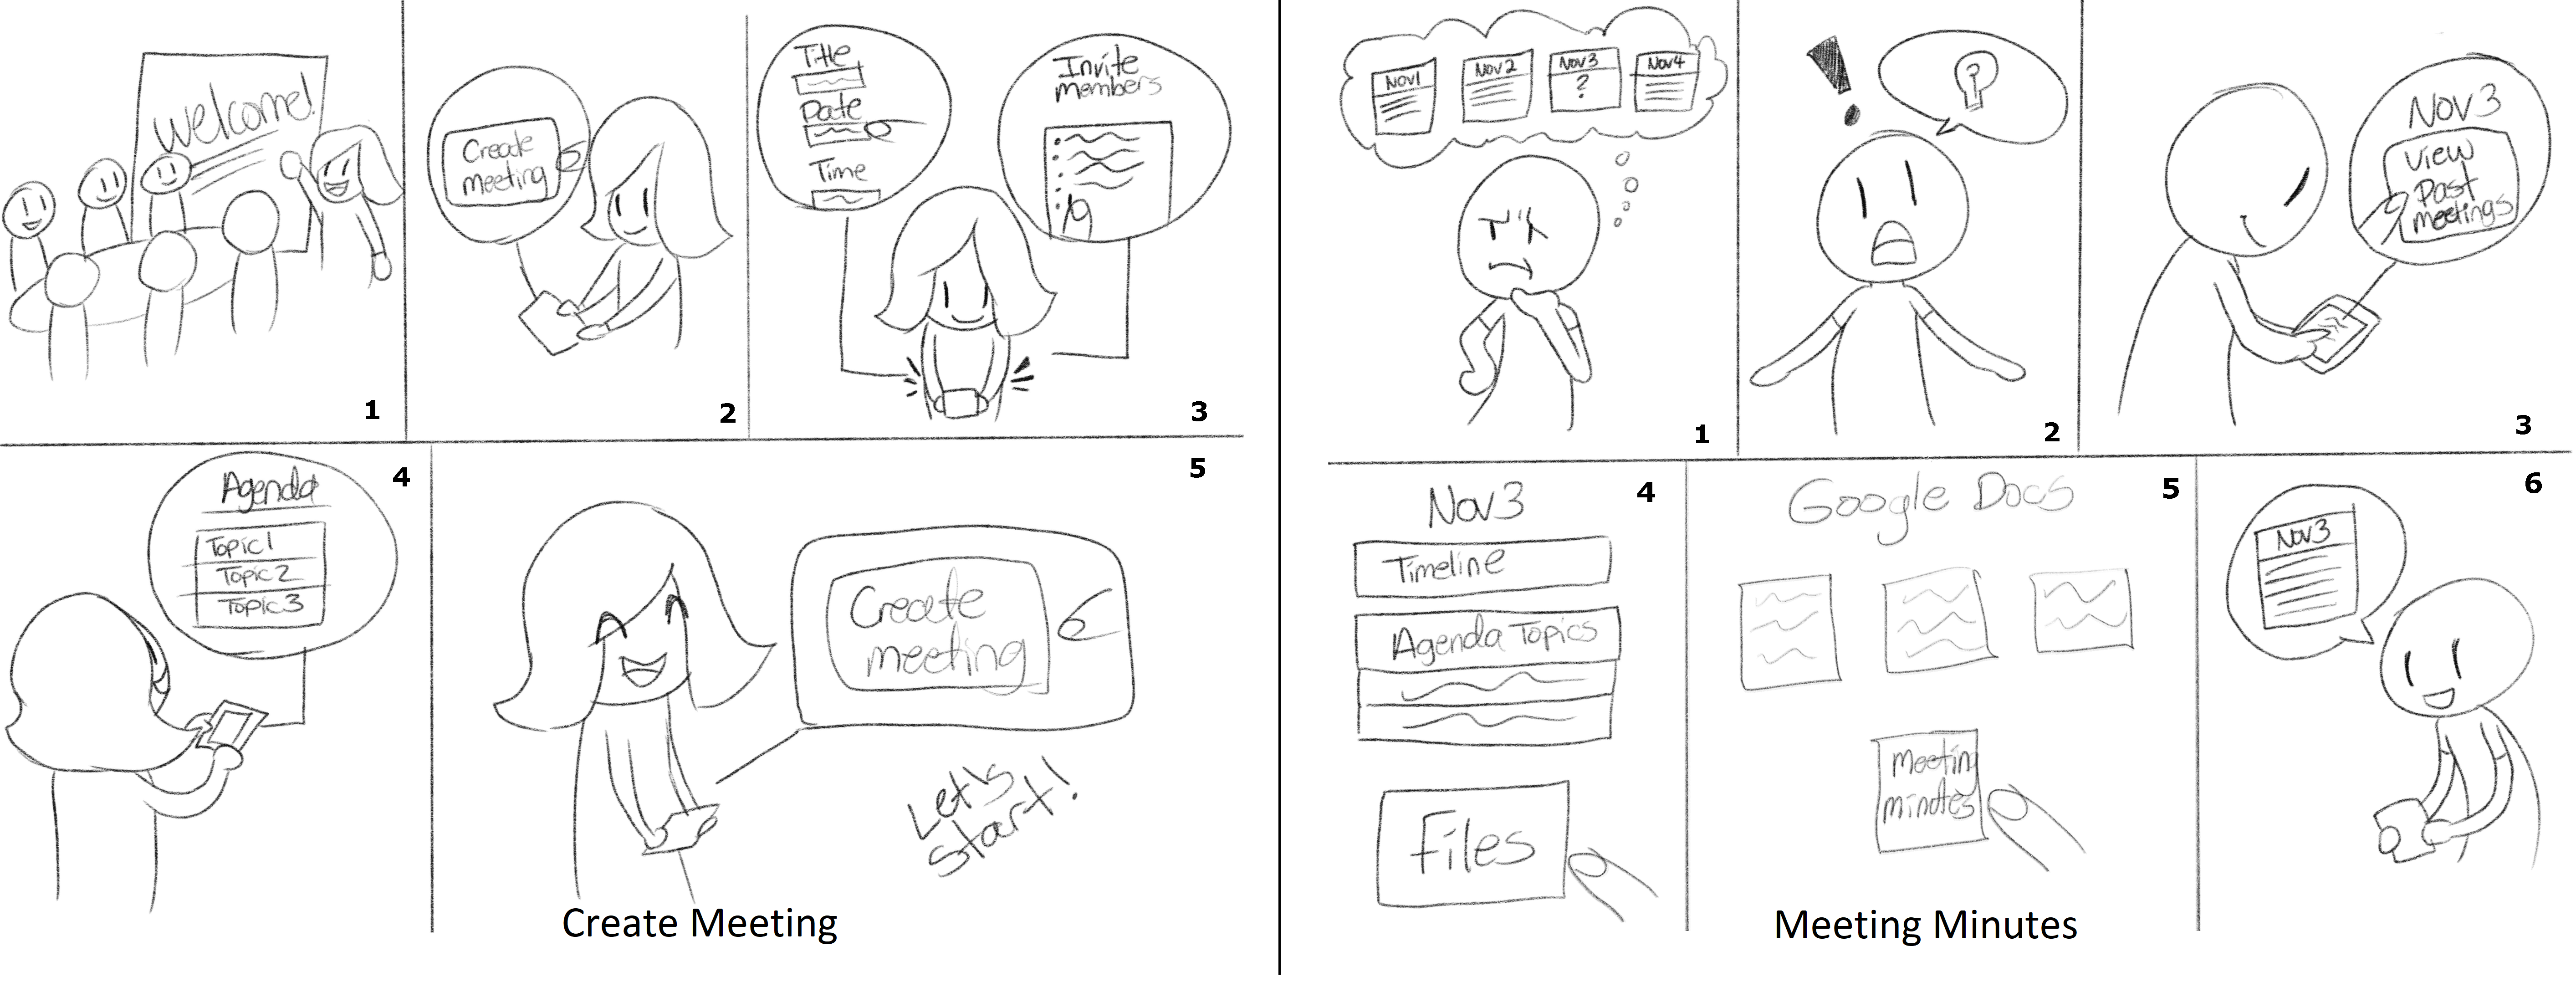 welcome!
1
Create
meeting
2
Title
Date
Time
Invite
members
3
Agenda
Topic1
Topic2
Topic3
4
Create
meeting
Let's
start!
5
Create Meeting
Nov1
Nov2
Nov3
?
Nov4
1
!
?
2
Nov3
View
Past
meetings
3
Nov3
Timeline
Agenda Topics
Files
4
Google Docs
meeting
minutes
5
Nov3
6
Meeting Minutes